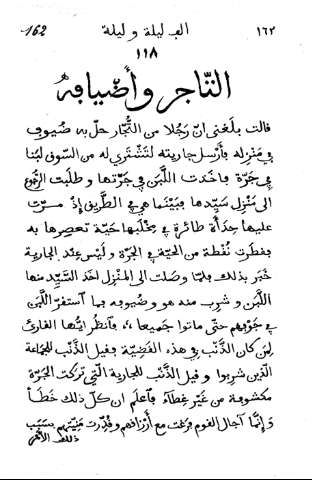 ١٦٢ الف ليلة و ليلة 162
١١٨
التّاجر وأضيافه
فالت بلغني انّ رَجُلا من التُّجّار حلّ به ضُيوف
في مَنْزِله فأرْسل جاريته لتَشْتَري له من السّوق لبنا
في جَرّة فاخذت اللّبَن في جَرّتها و طلبَت الرّجوع
الى مَنْزِل سَيّدها فبَيْنَما هي في الطّريق إذْ مرّت
عليها حِدَأة طائرة في مِخْلَبها حَيّة تَعصِرها به
فقطرت نُقْطة من الحيّة في الجَرّة و لَيْس عِند الجارية
خَبَر بذلك فلمّا وصَلت الى المَنْزِل اخذ السّيّد منها
اللّبَن و شرِب منه هو و ضُيوفه فما آستقرّ اللّبن
في جَوْفِهم حتّى ماتوا جَميعا، فآنظُر ايّها القارئ
لِمَن كان الذّنْب في هذه القَضيّة فقيل الذّنْب للجَماعة
الّذين شرِبوا و فيل الذّنْب للجارية الّتي تركت الجَرّة
مكشوفة من غَيْر غِطآء فآعلَم ان كلّ ذلك خَطَأ
وَ إنّما آجال القوم فرغت مع أرْزافهم و قُدّرت مَنِيّتهم بسَبَب
ذلك الأمر